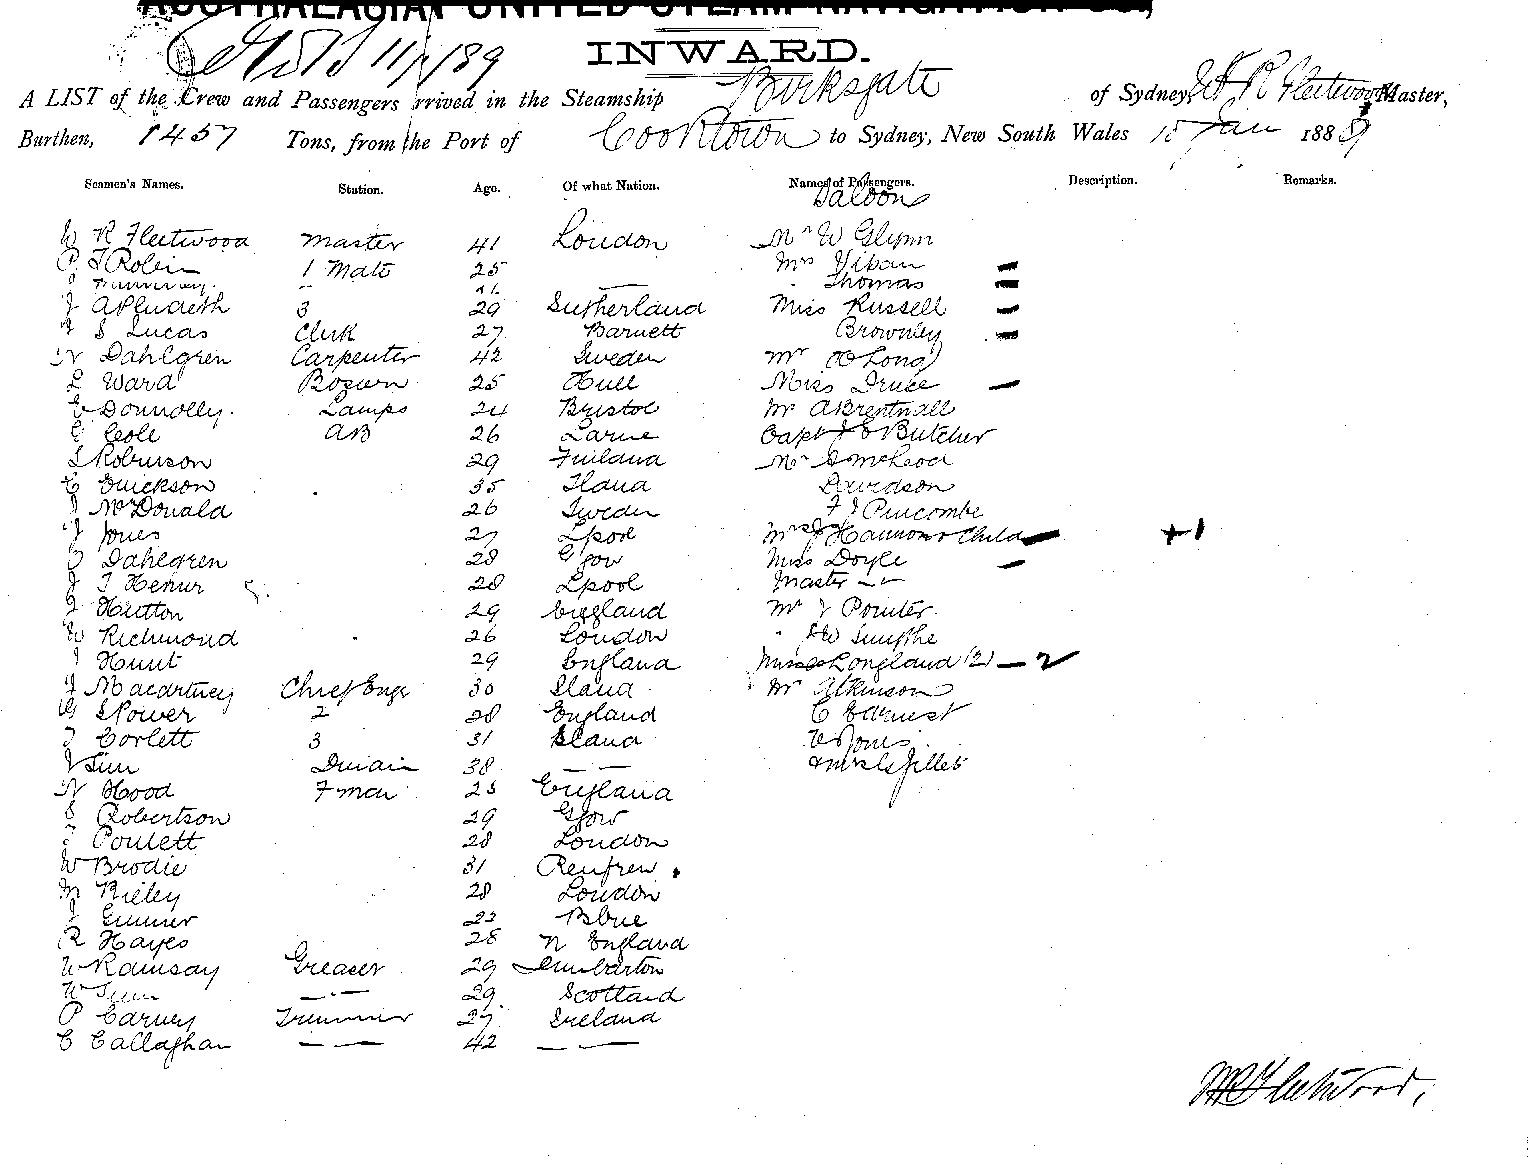 AUSTRALASIAN UNITED STEAM NAVIGATION CO.,
INWARD.
A LIST of the Crew and Passengers arrived in the Steamship Birksgate of Sydney, W R Fleetwood Master,
Burthen, 1457 Tons, from the Port of Cooktown to Sydney, New South Wales 15 Jan 1889
Seamen's Names. Station. Age. Of what Nation. Names of Passengers. Description. Remarks.
Saloon
W R Fleetwood Master 41 London Mr W Glynn
P T Robin 1 Mate 25 Mrs
Thomas
J 3 29 Sutherland Miss Russell
S Lucas Clerk 27 Barnett Brownley
N Dahlgren Carpenter 42 Sweden Mr Long
L Ward Bosun 25 Hull Miss Druce
E Donnolly Lamps 24 Bristol Mr A Brentnall
E Cole AB 26 Larne Capt J E Butcher
S Robinson 29 Finland Mr McLeod
C Erickson 35 Iland Davidson
J McDonald 26 Sweden F J Pincombe
J Jones 27 Lpool Mrs J Hannon & Child +1
O Dahlgren 28 Ggow Miss Doyle
J T 28 Lpool Master —
J Hutton 29 England Mr J Pointer
W Richmond 26 London " W Smythe
J Hunt 29 England Misses Longland (2) — 2
J Macartney Chief Engr 30 Iland Mr Atkinson
W S Power 2 28 England C Earnest
T Corlett 3 31 Iland E Jones
J Sim 38 — —
N Hood Fman 25 England
S Robertson 29 Ggow
T Poulett 28 London
W Brodie 31 Renfrew
M Rieley 28 London
J 22
R Hayes 28 N England
W Ramsay Greaser 29 Dumbarton
W — 29 Scotland
P Carney Trimmer 27 Ireland
C Callaghan — — 42 — —
W R Fleetwood